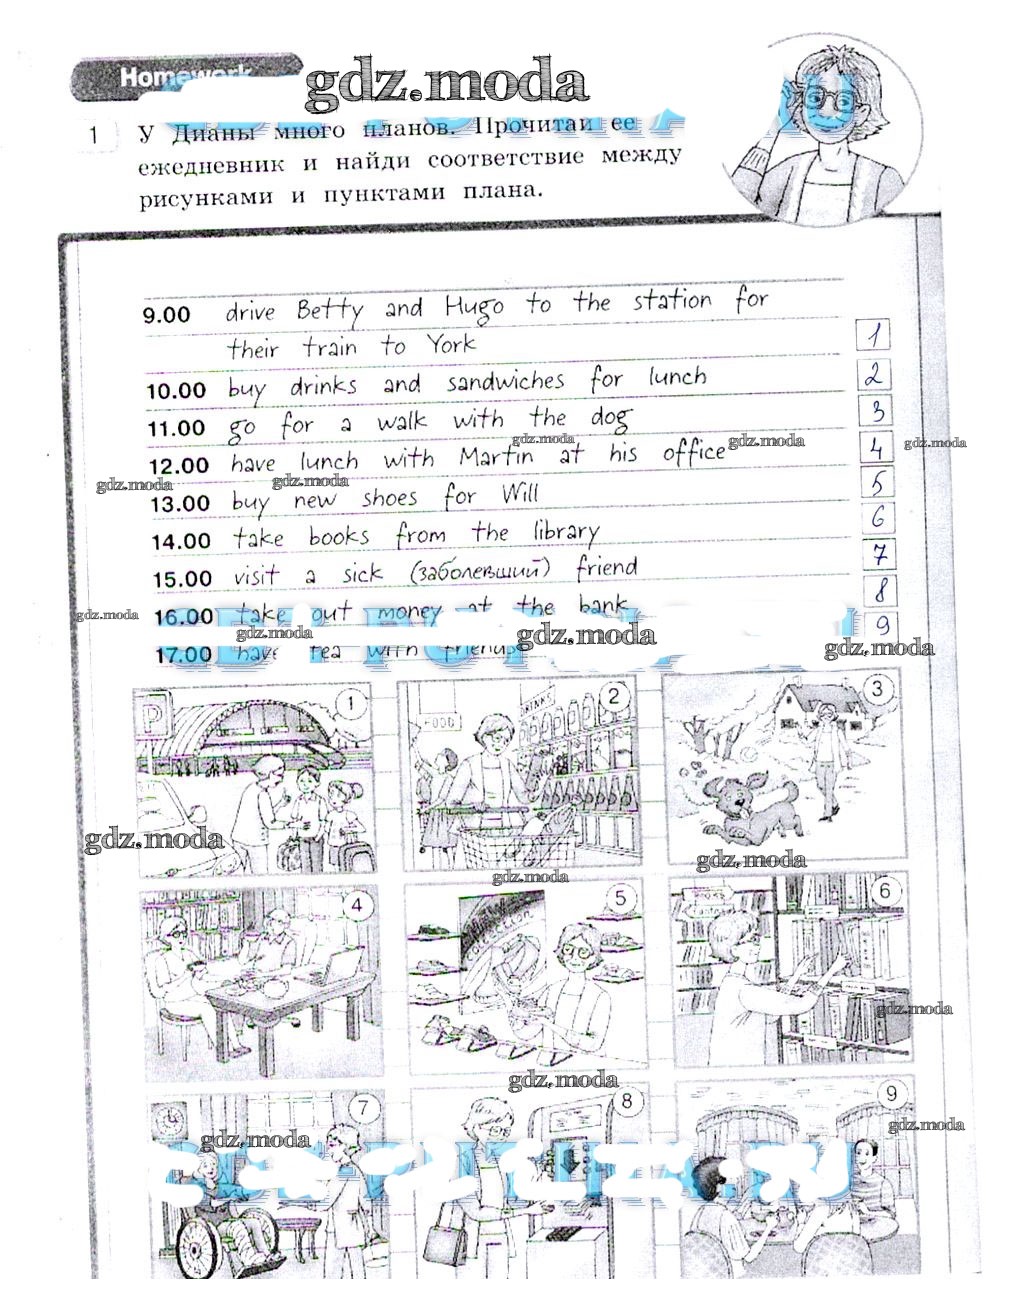 Homework
gdz.moda
1 У Дианы много планов. Прочитай ее
ежедневник и найди соответствие между
рисунками и пунктами плана.
9.00 drive Betty and Hugo to the station for
their train to York 1
10.00 buy drinks and sandwiches for lunch 2
11.00 go for a walk with the dog 3
gdz.moda gdz.moda gdz.moda
12.00 have lunch with Martin at his office 4
gdz.moda gdz.moda
13.00 buy new shoes for Will 5
14.00 take books from the library 6
15.00 visit a sick (заболевший) friend 7
16.00 take out money at the bank 8
gdz.moda
gdz.moda gdz.moda gdz.moda
17.00 have tea with friends 9
1 2 3
P
FOOD
DRINKS
gdz.moda
gdz.moda
gdz.moda
4 5 6
gdz.moda
gdz.moda
7 8 9
gdz.moda
gdz.moda